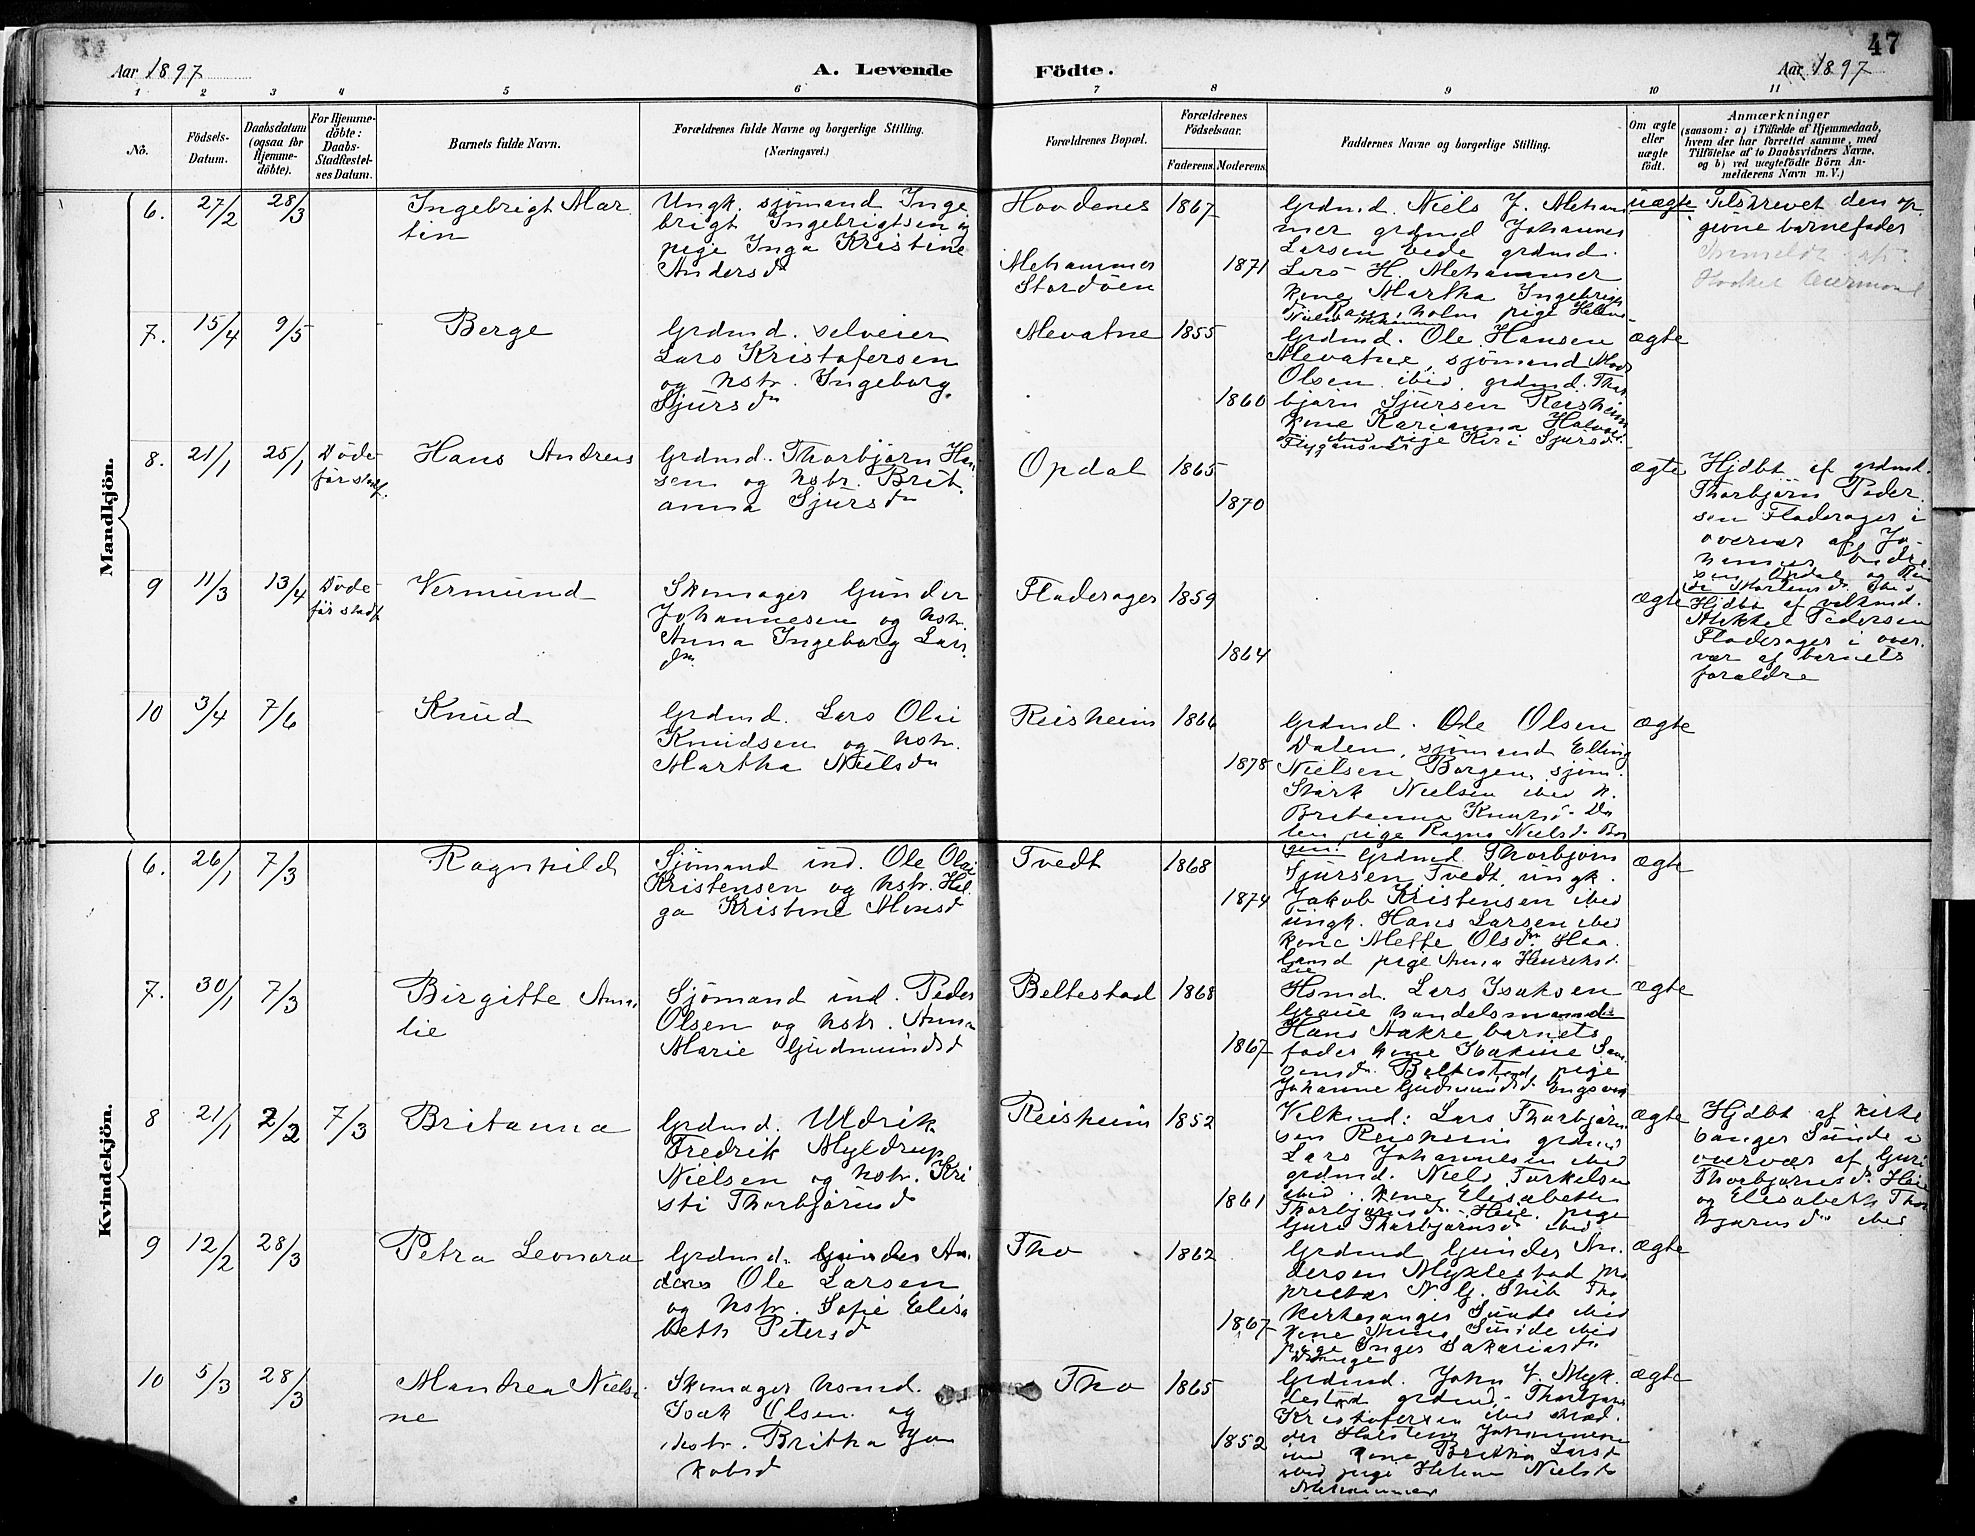 Aar 1897
A. Levende
Födte.
47
Aar 1897
1 2 3 4 5 6 7 8 9 10 11
No.
Födsels-
Datum.
Daabsdatum
(ogsaa for
Hjemme-
döbte).
For Hjemme-
döbte:
Daabs-
Stadfæstel-
ses Datum.
Barnets fulde Navn.
Forældrenes fulde Navne og borgerlige Stilling.
(Næringsvei.)
Forældrenes Bopæl.
Forældrenes
Födselsaar.
Faderens. Moderens.
Faddernes Navne og borgerlige Stilling.
Om ægte
eller
uægte
födt.
Anmærkninger
(saasom: a) i Tilfælde af Hjemmedaab,
hvem der har forrettet samme, med
Tilföielse af to Daabsvidners Navne,
og b) ved uægtefödte Börn An-
melderens Navn m. V.)
Mandkjön.
6. 27/2 28/3
Ingebrigt Mar
tin
Ungk. sjömand Inge
brigt Ingebrigtsen og
pige Inga Kristine
Andersd
Hovdenes 1867
Mehammer 1871
Stordöen
Grdmd. Niels J. Meham
mer grdmd Johannes
Larsen Eide grdmd.
Lars H. Mehammer
kone Martha Ingebrigts
holm pige Helene
uægte
Tilskrevet den op
givne barnefader
Anmeldt af
7. 15/4 9/5
Berge
Grdmd. selveier
Lars Kristofersen
og hstr. Ingeborg
Sjursd
Mevatne 1855
1860
Grdmd. Ole Hansen
Mevatne, sjömand
Olsen ibid. grdmd. Thor
björn Sjursen Reisheim
kone Karianna
ibid pige Kari Sjursd
ægte
8. 21/1 25/1 Döde
för stadf.
Hans Andreas
Grdmd. Thorbjörn Han
sen og hstr. Brit
anna Sjursd
Opdal 1865
1870
ægte
Hjdbt af grdmd.
Thorbjörn Peder
sen Fladerager i
overvær af Jo-
hannes
sen Opdal og
9 11/3 13/4 Döde
för stadf
Vermund
Skomager Gunder
Johannesen og hstr.
Anna Ingeborg Lars
dr
Fladerager 1859
1864
ægte
Hjdbt af velkmd.
Mikkel Pedersen
Fladerager i over
vær af barnets
forældre
10 3/4 7/6
Knud
Grdmd. Lars Olai
Knudsen og hstr.
Martha Nielsd
Reisheim 1866
1878
Grdmd. Ole Olsen
Dalen, sjömand Elling
Nielsen Borgen, sjöm.
Stark Nielsen ibid k.
Britanna Knutsd Da
len pige Ragna Nielsd Bor
gen.
ægte
Kvindekjön.
6. 26/1 7/3
Ragnhild
Sjömand ind. Ole Olai
Kristensen og hstr. Hel
ga Kristine Monsd
Tvedt 1868
1874
Grdmd. Thorbjörn
Sjursen Tvedt, ungk.
Jakob Kristensen ibid
ungk. Hans Larsen ibid
kone Mette Olsdr Haa
land pige Anna Henriksd
Lie
ægte
7. 30/1 7/3
Birgitte Ama
lie
Sjömand ind. Peder
Olsen og hstr. Anna
Marie Gudmundsd
Beltestad 1868
1867
Hsmd. Lars Isaksen
Graue handelsmand
Hans Aakre barnets
fader kone
Beltestad pige
Johanne Gudmundsd
ægte
8 21/1 2/2 7/3
Britanna
Grdmd. Uldrik
Fredrik Myldrup
Nielsen og hstr. Kri
sti Thorbjörnsd
Reisheim 1852
1861
Velkmd: Lars Thorbjörn
sen Reisheim grdmd
Lars Johannesen ibid
grdmd. Niels Torkelsen
ibid. kone Elisabeth
Thorbjörnsd Heie pige
Guri Thorbjörnsd ibid
ægte
Hjdbt af kirke
sanger Sunde i
overvær af Guri
Thorbjörnsd. Heie
og Elisabeth Thor
björnsd ibid
9 12/2 28/3
Petra Leonora
Grdmd. Gunder An
ders Ole Larsen
og hstr. Sofie Elisa
beth Petersd
Tho 1862
1867
Grdmd. Gunder An
dersen Myklestad pro
prietær N. G. Skib Tho
kirkesanger Sunde ibid
kone Anna Sunde ibid
pige Inger Sakariasdr
ægte
10 5/3 28/3
Mandrea Nielsi
ne
Skomager hsmd.
Isak Olsen og
hstr. Britha Ja
kobsd
Tho 1865
1852
Grdmd. John J. Myk
lestad grdmd. Thorbjörn
Kristofersen ibid
Johannesen
ibid kone Britha Larsd
ibid pige Helene Nielsd
Mehammer
ægte